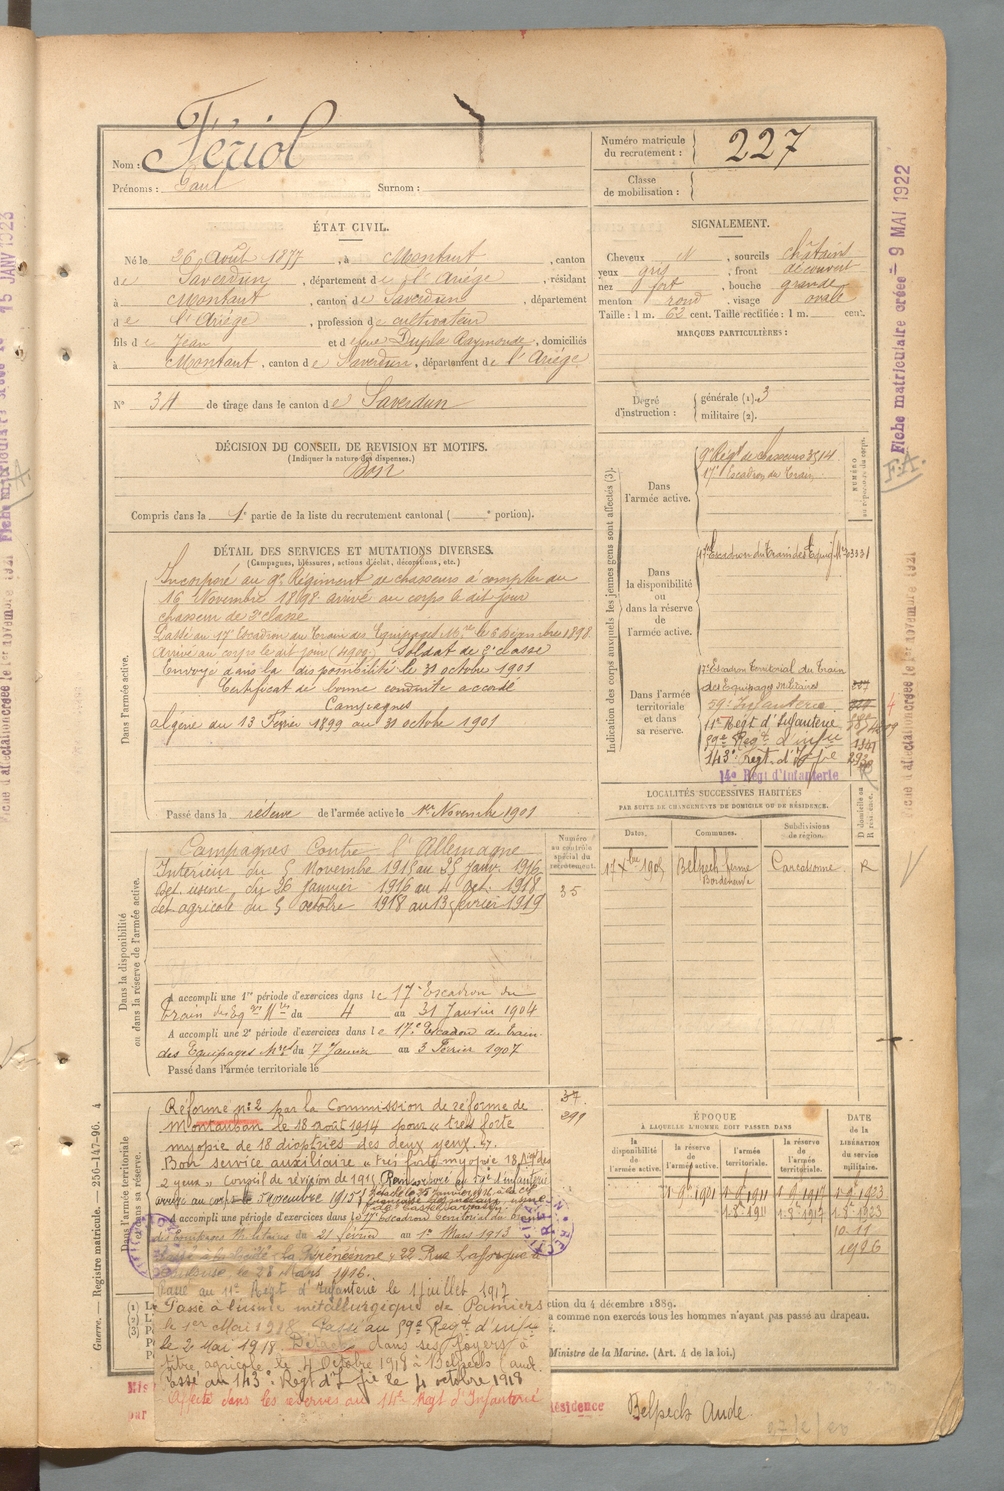 Nom : Fériol
Prénoms : Paul Surnom :
Numéro matricule du recrutement : 227
Classe de mobilisation :
ÉTAT CIVIL.
Né le 26 Août 1877, à Montaut, canton
de Saverdun, département de l'Ariège, résidant
à Montaut, canton de Saverdun, département
de l'Ariège, profession de cultivateur
fils de Jean et de Dupla Raymonde, domiciliés
à Montaut, canton de Saverdun, département de l'Ariège
N° 31 de tirage dans le canton de Saverdun
SIGNALEMENT.
Cheveux N, sourcils châtains
yeux gris, front découvert
nez fort, bouche grande
menton rond, visage ovale
Taille : 1 m. 62 cent. Taille rectifiée : 1 m. cent.
MARQUES PARTICULIÈRES :
Degré d'instruction : générale (1). 3
militaire (2).
DÉCISION DU CONSEIL DE REVISION ET MOTIFS.
(Indiquer la nature des dispenses.)
Bon
Compris dans la 1e partie de la liste du recrutement cantonal ( e portion).
DÉTAIL DES SERVICES ET MUTATIONS DIVERSES.
(Campagnes, blessures, actions d'éclat, décorations, etc.)
Dans l'armée active.
Incorporé au 9e Régiment de chasseurs à compter du
16 Novembre 1898 arrivé au corps le dit jour
chasseur de 2e classe
Passé au 17e Escadron du Train des Equipages Mres le 6 décembre 1898
Arrivé au corps le dit jour Soldat de 2e classe
Envoyé dans la disponibilité le 31 octobre 1901
Certificat de bonne conduite accordé
Campagnes
Algérie du 13 Février 1899 au 31 octobre 1901
Passé dans la réserve de l'armée active le 1er Novembre 1901
Indication des corps auxquels les jeunes gens sont affectés (3).
Dans l'armée active.
9e Régt de chasseurs 3514
17e Escadron du Train
NUMÉRO
Dans la disponibilité ou dans la réserve de l'armée active.
17e Escadron du Train des Equip. Mres
Dans l'armée territoriale et dans sa réserve.
17e Escadron territorial du Train
des Equipages Militaires
59e Infanterie
11e Régt d'Infanterie
59e Régt d'infie
143e Régt d'Infie
14e Régt d'Infanterie
LOCALITÉS SUCCESSIVES HABITÉES
PAR SUITE DE CHANGEMENTS DE DOMICILE OU DE RÉSIDENCE.
Dates. Communes. Subdivisions de région. D domicile ou R résidence.
17 Xbre 1905 Belpech ferme Bordeneuve Carcassonne R
Dans la disponibilité ou dans la réserve de l'armée active.
Numéro au contrôle spécial du recrutement.
35
Campagnes Contre l'Allemagne
Intérieur du 5 Novembre 1915 au 25 Janv. 1916
Det. usine du 26 janvier 1916 au 4 Oct. 1918
det agricole du 5 octobre 1918 au 13 février 1919
A accompli une 1re période d'exercices dans le 17e Escadron du
Train des Eqges Mres du 4 au 31 Janvier 1904
A accompli une 2e période d'exercices dans le 17e Escadron du train
des Equipages Mres du 7 Janvier au 3 Février 1907
Passé dans l'armée territoriale le
Dans l'armée territoriale et dans sa réserve.
37
299
Réformé n° 2 par la Commission de réforme de
Montauban le 18 août 1914 pour « très forte
myopie de 18 dioptries des deux yeux. »
Bon service auxiliaire « très forte myopie 18 des
2 yeux » Conseil de révision de 1915
arrivé au corps le 5 novembre 1915
A accompli une période d'exercices dans le 17e Escadron territorial du train
des Equipages Militaires du 21 février au 1er Mars 1913
22 Rue Lafforgue à
Toulouse, le 28 Mars 1916.
Passé au 11e Régt d'Infanterie le 1 juillet 1917
Passé à l'usine métallurgique de Pamiers
le 1er Mai 1918. Passé au 59e Régt d'infie
le 2 Mai 1918. Détaché dans ses foyers à
titre agricole le 4 Octobre 1918 à Belpech (Aude
Passé au 143e Régt d'Infie le 4 octobre 1918
Affecté dans les réserves au 14e Régt d'Infanterie
ÉPOQUE
À LAQUELLE L'HOMME DOIT PASSER DANS
la disponibilité de l'armée active. la réserve de l'armée active. l'armée territoriale. la réserve de l'armée territoriale.
DATE de la LIBÉRATION du service militaire.
1-9bre 1901 1-9 1911 1-9 1917 1-9 1923
1-8bre 1911 1-8bre 1917 1-8bre 1923
10-11-1926
ction du 4 décembre 1889.
a comme non exercés tous les hommes n'ayant pas passé au drapeau.
Ministre de la Marine. (Art. 4 de la loi.)
Résidence Belpech Aude.
Guerre. — Registre matricule. — 256-147-96. 4
Fiche matriculaire créée — 9 MAI 1922
F.A.
15 JANV 1923